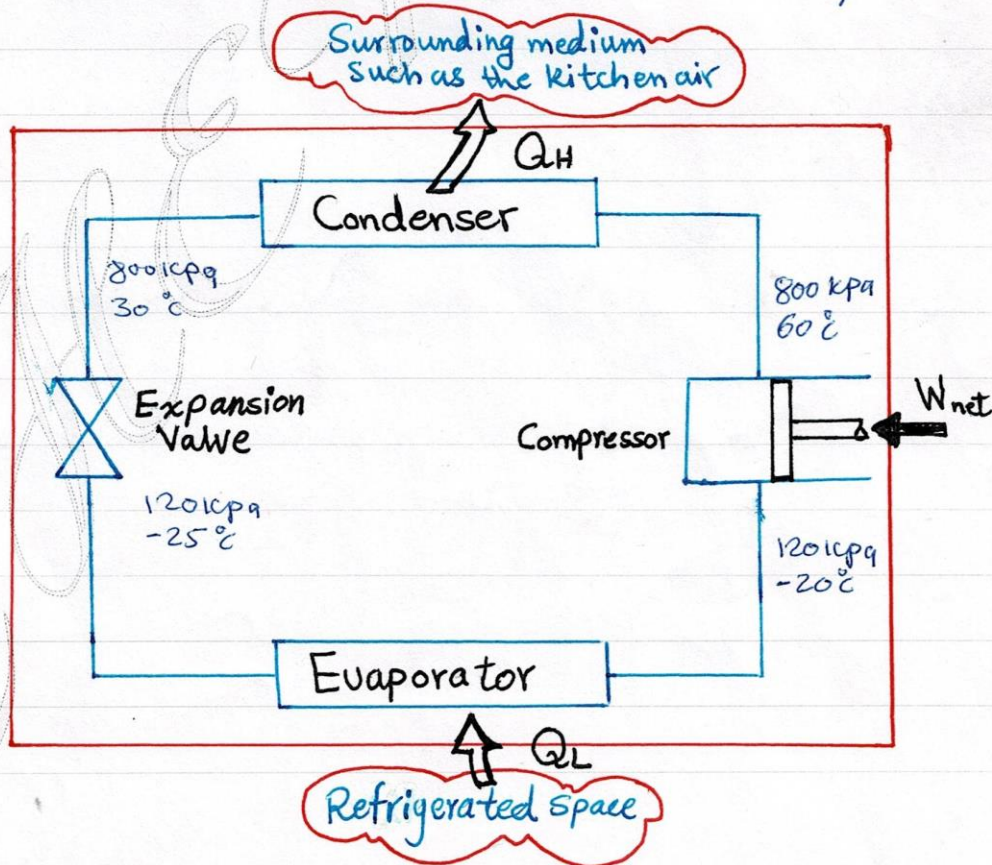 Surrounding medium
Such as the kitchen air
QH
Condenser
800 kpa
30 °c
800 kpa
60 °c
Expansion
Valve
Compressor
Wnet
120 kpa
-25 °c
120 kpa
-20 °c
Evaporator
QL
Refrigerated Space